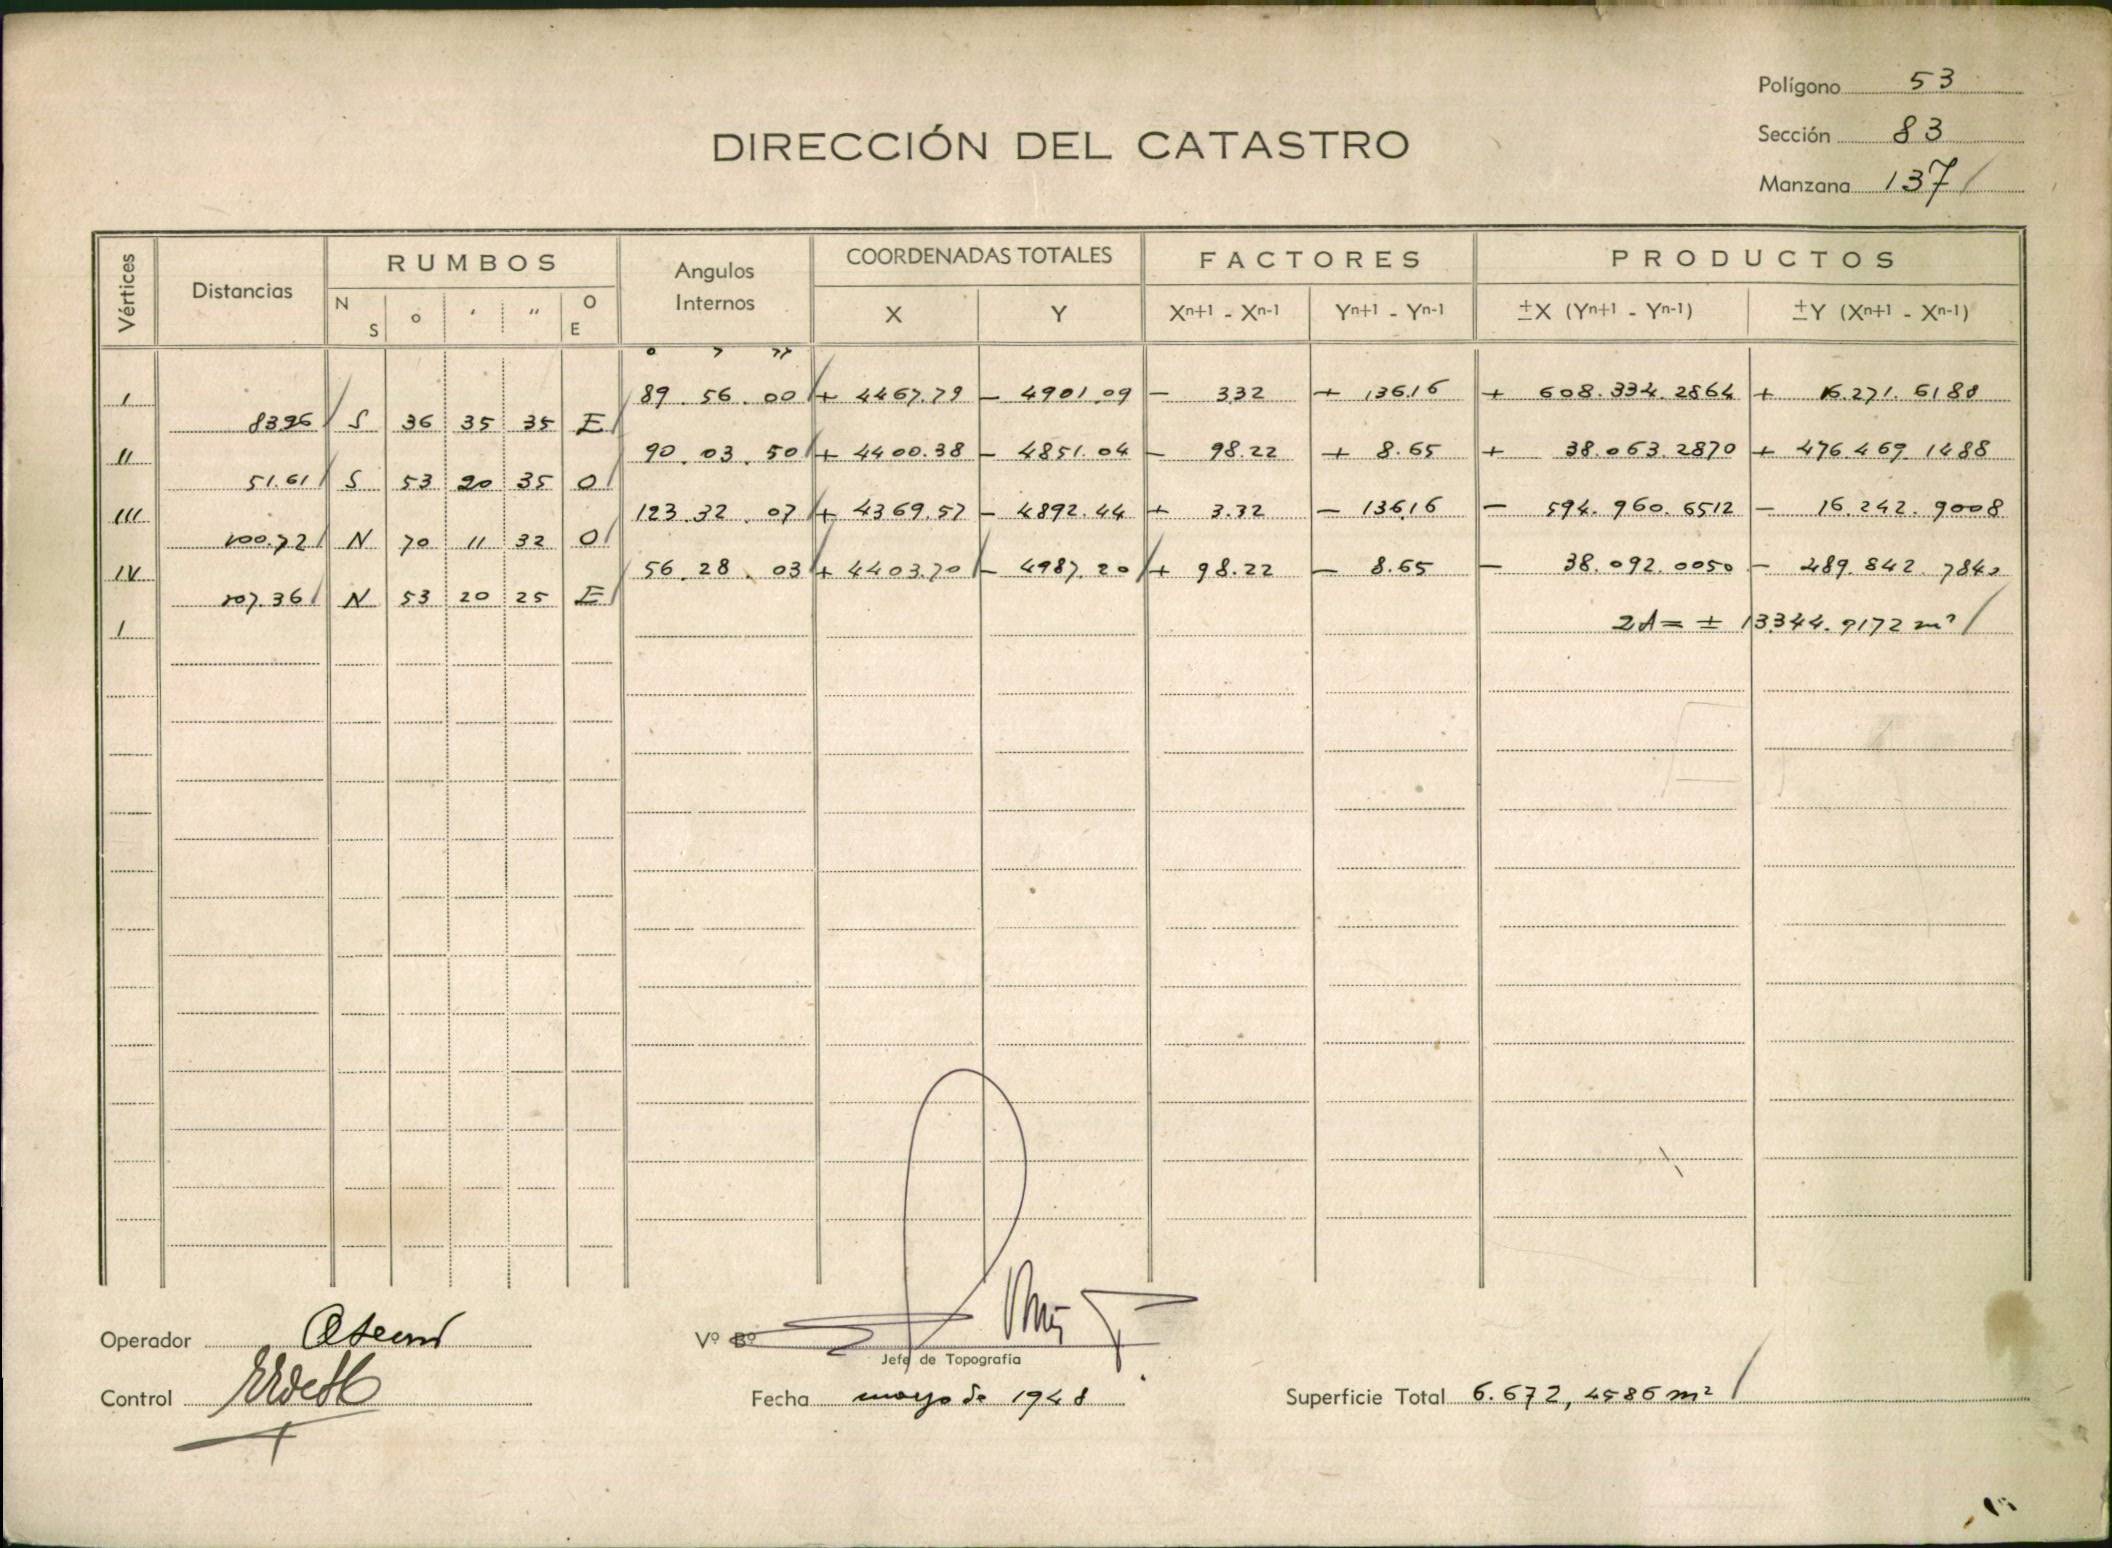 Polígono 53
Sección 83
Manzana 137
DIRECCIÓN DEL CATASTRO
Vértices Distancias RUMBOS Angulos Internos COORDENADAS TOTALES FACTORES PRODUCTOS
N S ° ' " O E X Y Xn+1 - Xn-1 Yn+1 - Yn-1 ±X (Yn+1 - Yn-1) ±Y (Xn+1 - Xn-1)
° ' "
I 89 . 56 . 00 + 4467.79 - 4901.09 - 3.32 + 136.16 + 608.334.2864 + 16.271.6188
83.96 S 36 35 35 E
II 90 . 03 . 50 + 4400.38 - 4851.04 - 98.22 + 8.65 + 38.063.2870 + 476.469.1488
51.61 S 53 20 35 O
III 123 . 32 . 07 + 4369.57 - 4892.44 + 3.32 - 136.16 - 594.960.6512 - 16.242.9008
100.72 N 70 11 32 O
IV 56 . 28 . 03 + 4403.70 - 4987.20 + 98.22 - 8.65 - 38.092.0050 - 489.842.7840
107.36 N 53 20 25 E
I 2A = ± 13344.9172 m²
Operador
Vº Bº
Jefe de Topografía
Control
Fecha mayo de 1948
Superficie Total 6.672,4586 m²